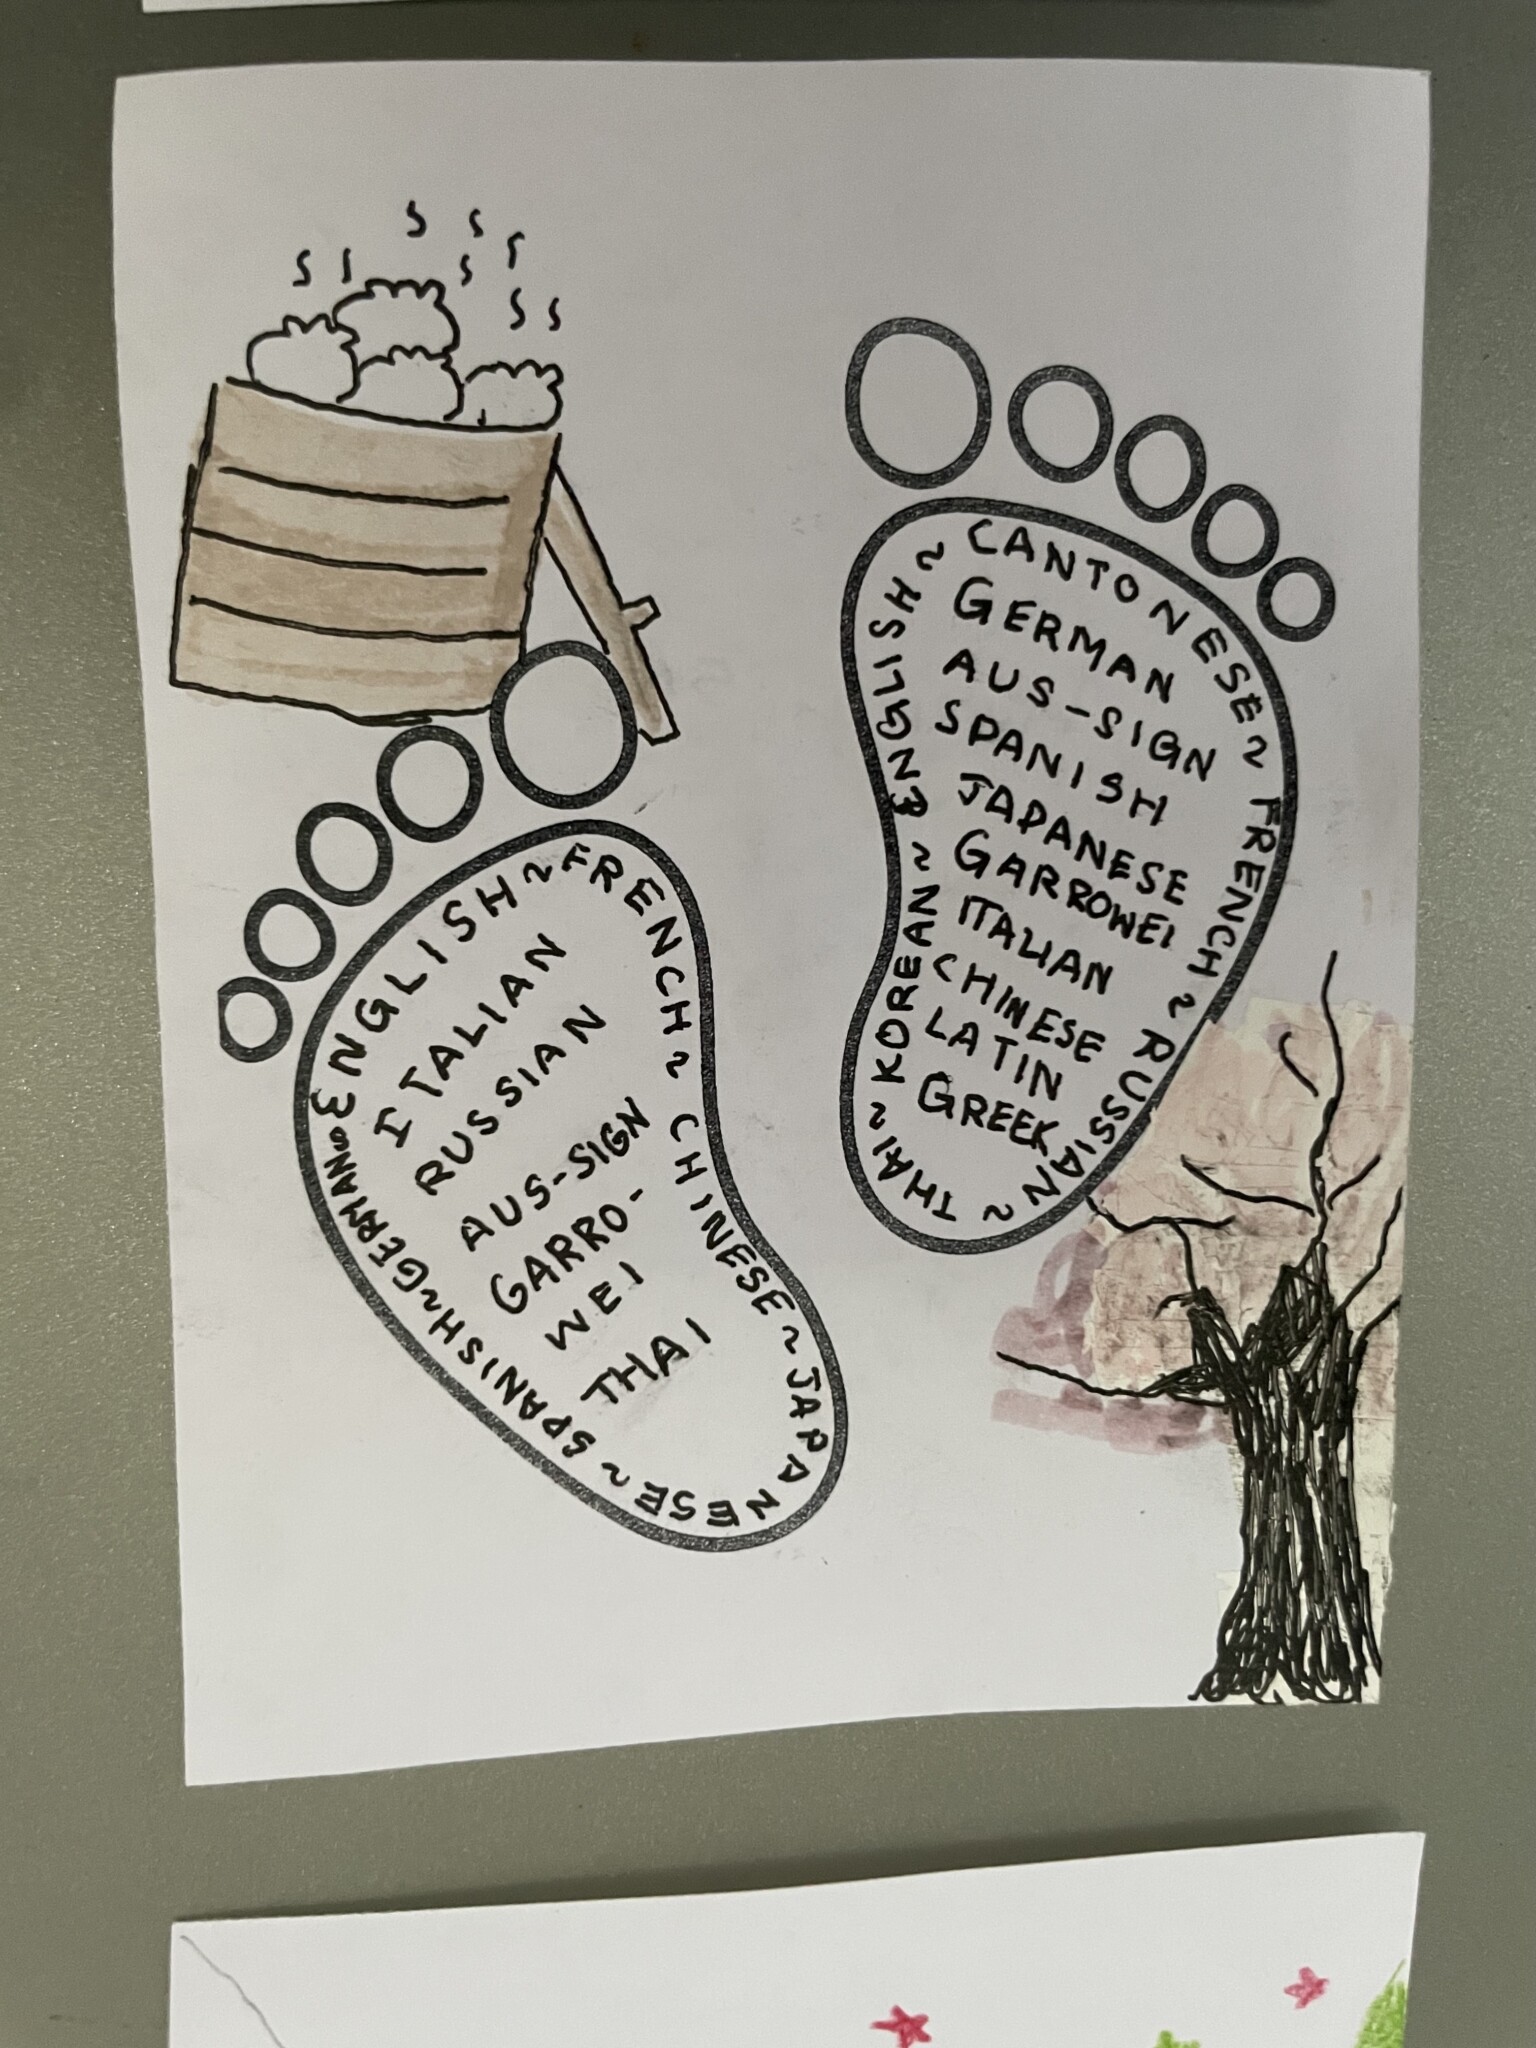 ENGLISH ~ FRENCH ~ CHINESE ~ JAPANESE ~ SPANISH ~ GERMAN ~
ITALIAN
RUSSIAN
AUS-SIGN
GARRO-
WEI
THAI
ENGLISH ~ CANTONESE ~ FRENCH ~ RUSSIAN ~ THAI ~ KOREAN ~
GERMAN
AUS-SIGN
SPANISH
JAPANESE
GARROWEI
ITALIAN
CHINESE
LATIN
GREEK